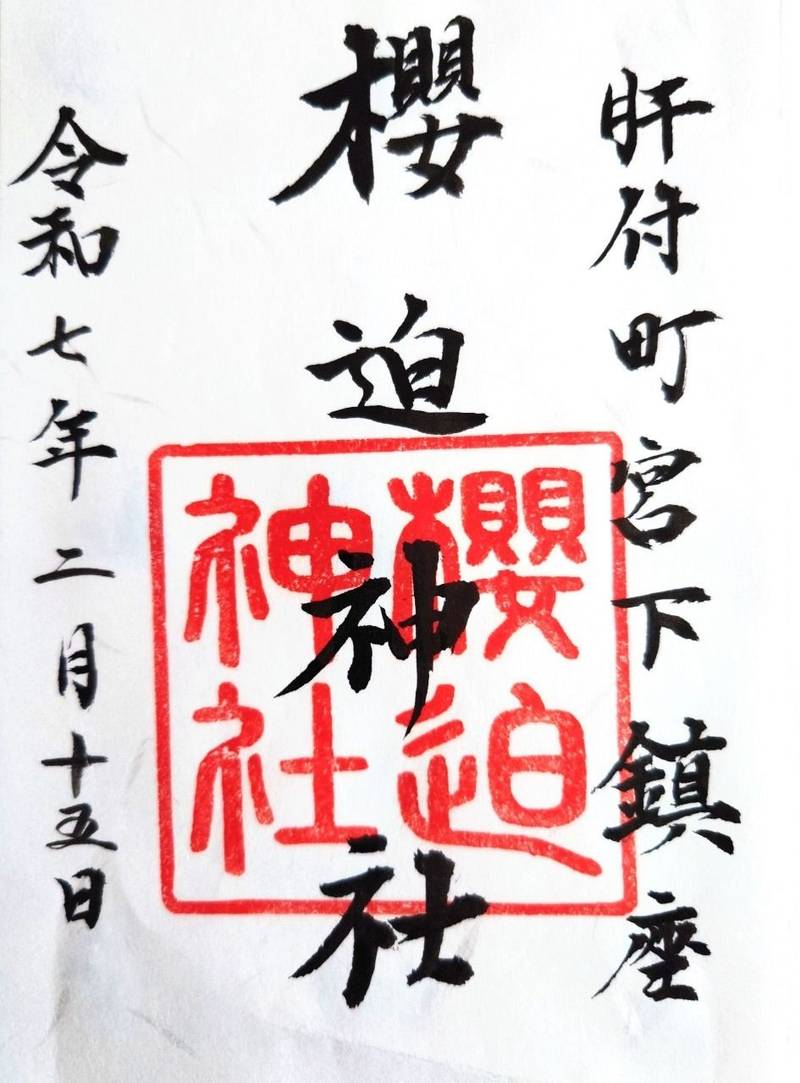 肝付町宮下鎮座
櫻迫神社
櫻迫
神社
令和七年二月十五日